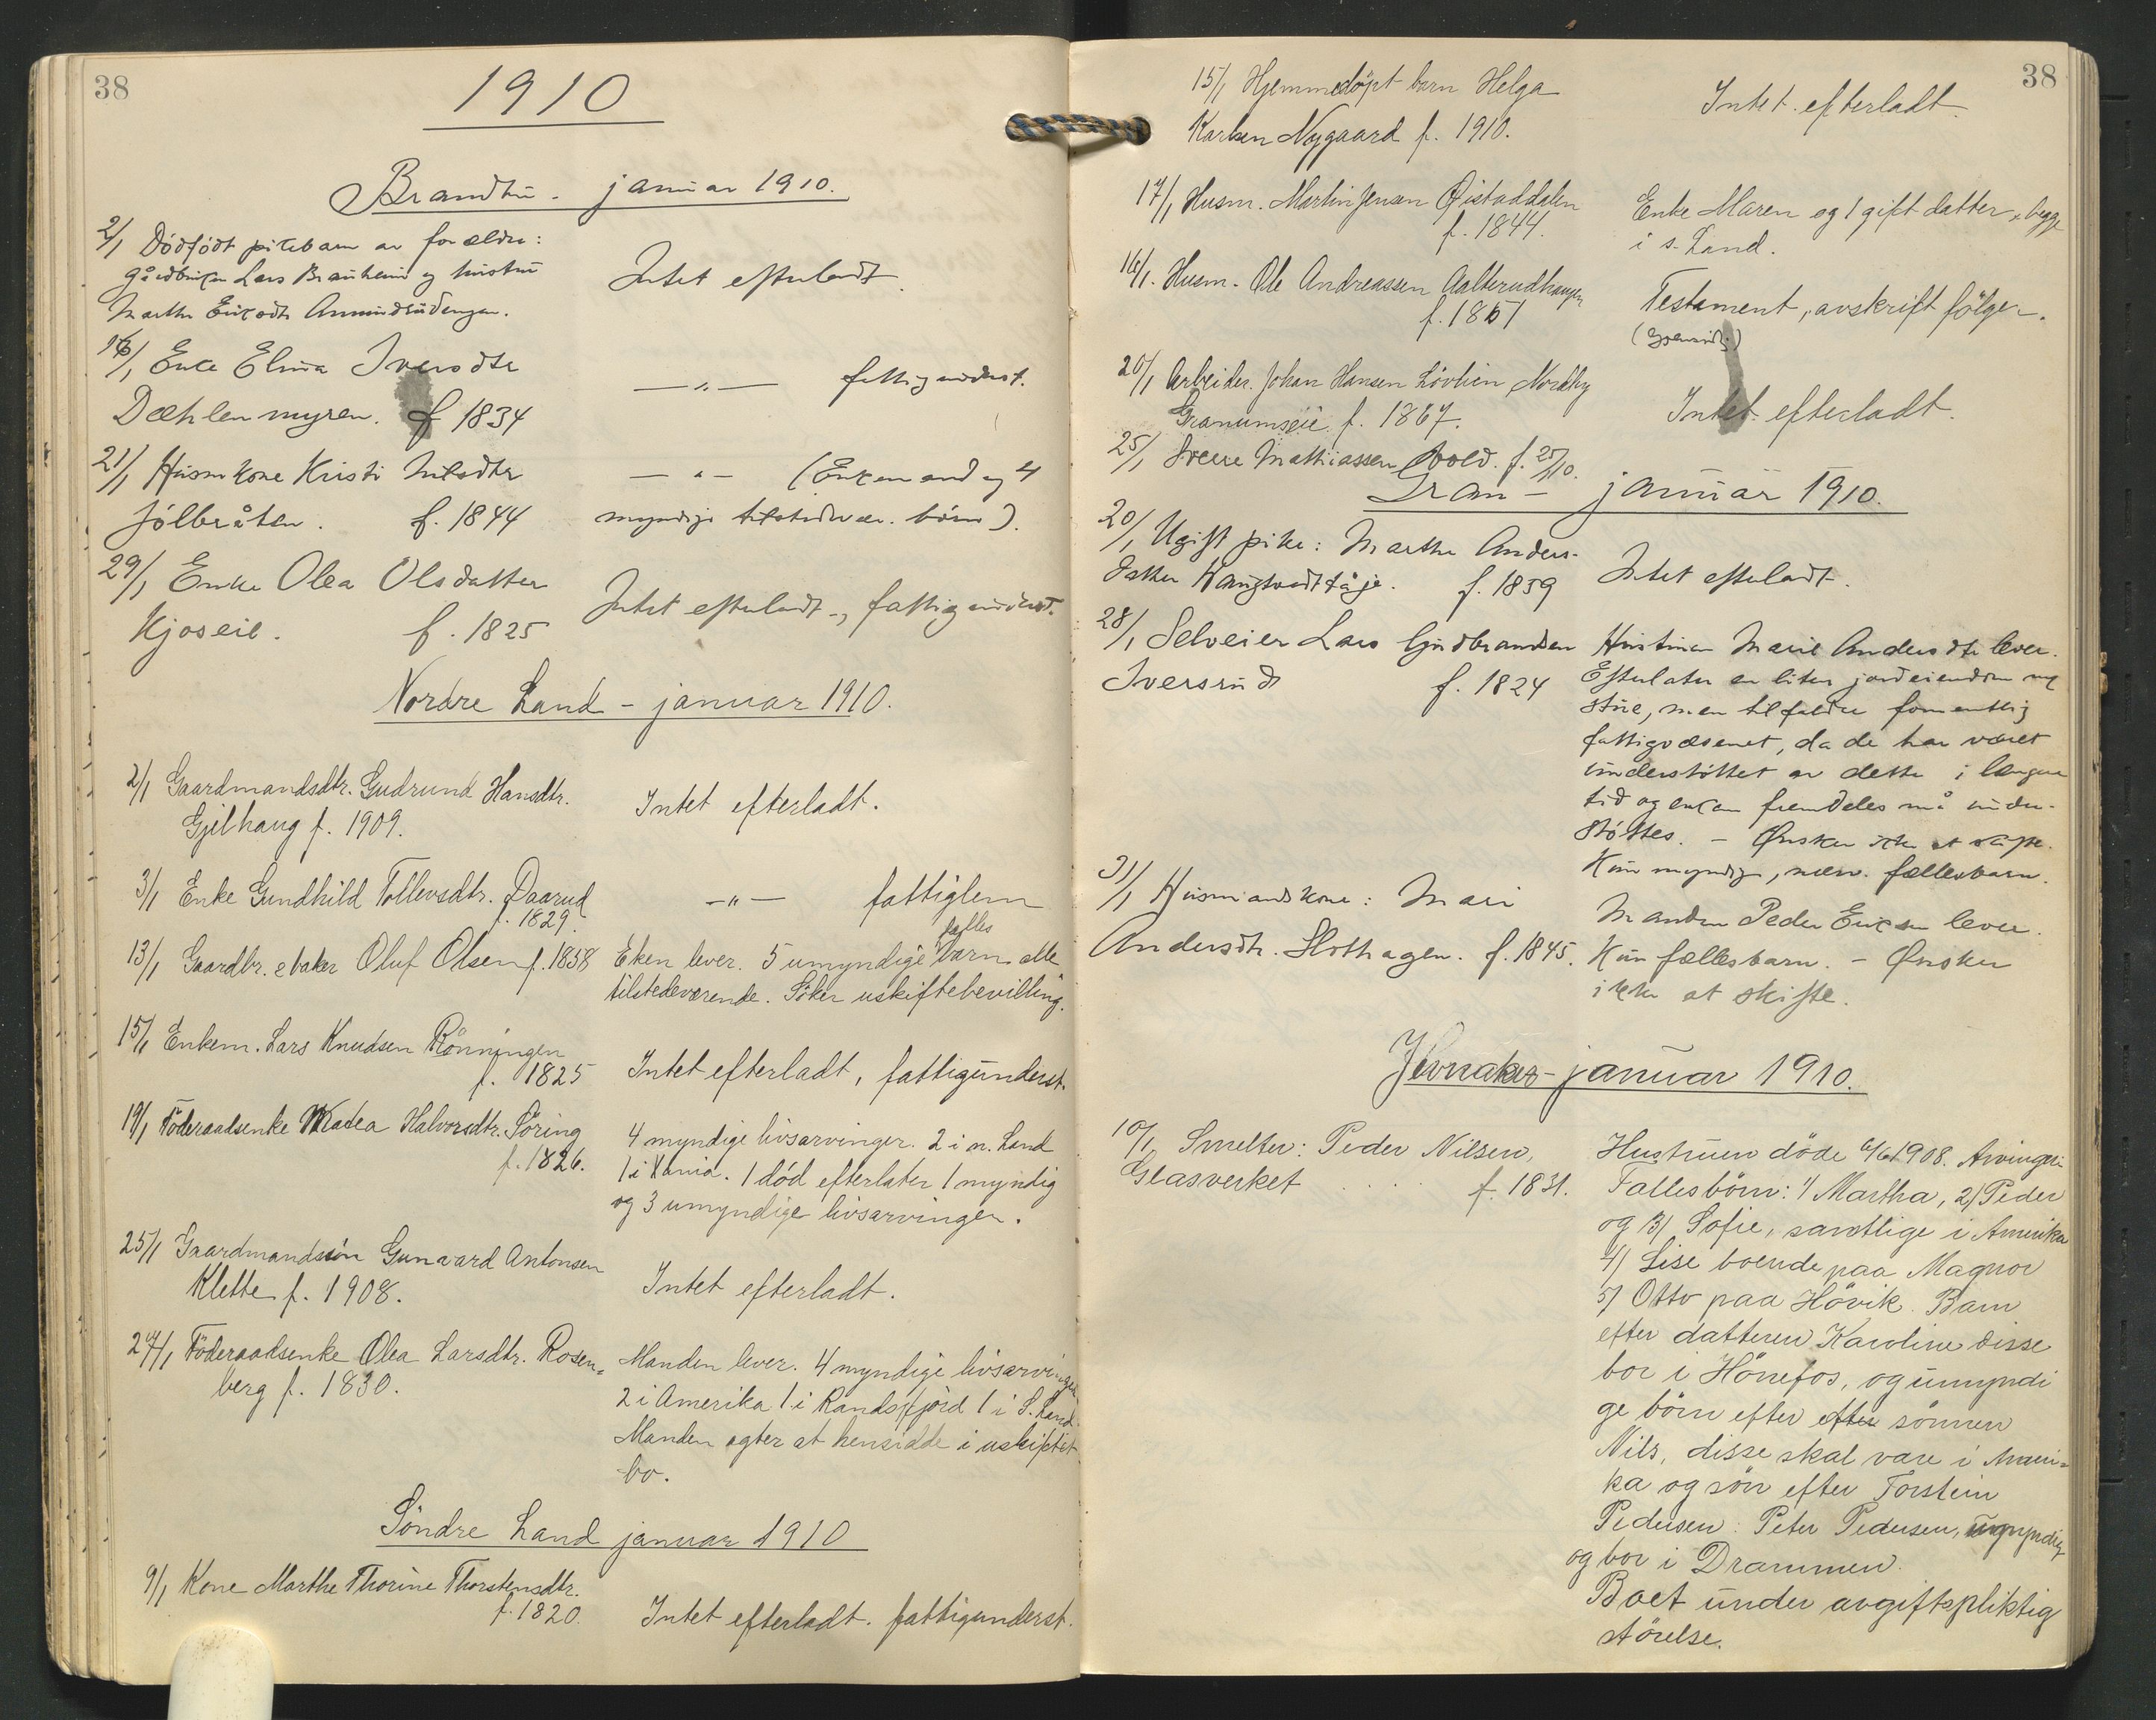 38
1910
Brandbu - januar 1910.
2/1 Dödfödt pikebarn av forældre:
gårdbruker Lars Brauheim og hustru
Marthe Eriksdtr Amundrudengen.
Intet efterladt.
16/1 Enke Elina Iversdtr
Dæhlenmyren. f 1834
—„— fattigunderst.
21/1 Husmkone Kristi Nilsdtr
Jólbråten. f. 1844
—„— (Enkemand og 4
myndige tilstedevær. börn).
29/1 Enke Olea Olsdatter
Kjoseie. f. 1825
Intet efterladt -, fattigunderst.
Nordre Land - januar 1910.
2/1 Gaardmandsdtr. Gudrund Hansdtr.
Gjilhaug f. 1909.
Intet efterladt.
3/1 Enke Gundhild Tollevsdtr. Daarud
f. 1829.
—„— fattiglem
13/1 Gaardbr. e baker Oluf Olsen f. 1858
fælles
Eken lever. 5 umyndige barn alle
tilstedeværende. Söker uskiftebevilling.
15/1 Enkem. Lars Knudsen Rönningen
f. 1825
Intet efterladt, fattigunderst.
19/1 Föderaadsenke Madea Halvorsdtr. Söring
f. 1826.
4 myndige livsarvinger. 2 i n. Land
1 i Kania. 1 död efterlater 1 myndig
og 3 umyndige livsarvinger.
25/1 Gaardmandssön Gunvard Antonsen
Klette f. 1908.
Intet efterladt.
27/1 Föderaadsenke Olea Larsdtr. Rosen-
berg f. 1830.
Manden lever. 4 myndige livsarvinger
2 i Amerika 1 i Randsfjord 1 i S. Land.
Manden agter at hensidde i uskiftet
bo.
Söndre Land januar 1910
9/1 Kone Marthe Thorine Thorstensdtr.
f. 1820.
Intet efterladt. fattigunderst.
38
15/1 Hjemmedöpt barn Helga
Karlsen Nygaard f. 1910.
Intet efterladt.
17/1 Husm. Martin Jensen Öistaddalen
f. 1844.
Enke Maren og 1 gift datter, begge
i s. Land.
16/1. Husm. Ole Andreassen Aalterudhaugen
f. 1861
Testament, avskrift fölger.
20/1 Arbeider. Johan Hansen Lövlien Nordby
Granumseie f. 1867.
Intet efterladt.
25/1 Sverre Mathiassen Ovold. f. 25/1 10.
Gran - januar 1910.
20/1 Ugift pike: Marthe Anders-
datter f. 1859
Intet efterladt.
28/1 Selveier Lars Gudbrandsen
Iversrud f. 1824
Hustruen Marie Andersdtr lever.
Efterlater en liten jordeiendom og
stue, men tilfalder formentlig
fattigvæsenet, da de har været
understöttet av dette i længere
tid og enken fremdeles må under-
stöttes. - Önsker ikke at skifte.
Kun myndige, nærv. fællesbarn.
31/1 Husmandskone: Mari
Andersdtr. Slotthagen. f. 1845.
Manden Peder Eriksen lever.
Kun fællesbarn. - Önsker
ikke at skifte.
Jevnaker - januar 1910.
10/1 Smelter: Peder Nilsen,
Glasverket .... f. 1831.
Hustruen döde 6/6 1908. Arvinger:
Fællesbörn: 1/ Martha, 2/ Peder
og 3/ Sofie, samtlige i Amerika
4/ Lise boende paa Magnor
5/ Otto paa Hövik. Barn
efter datteren Karoline disse
bor i Hönefos, og umyndi
ge börn efter efter sönnen
Nils, disse skal være i Ameri-
ka og sön efter Torstein
Pedersen: Peter Pedersen, umyndig
og bor i Drammen.
Boet under avgiftspliktig
störelse.